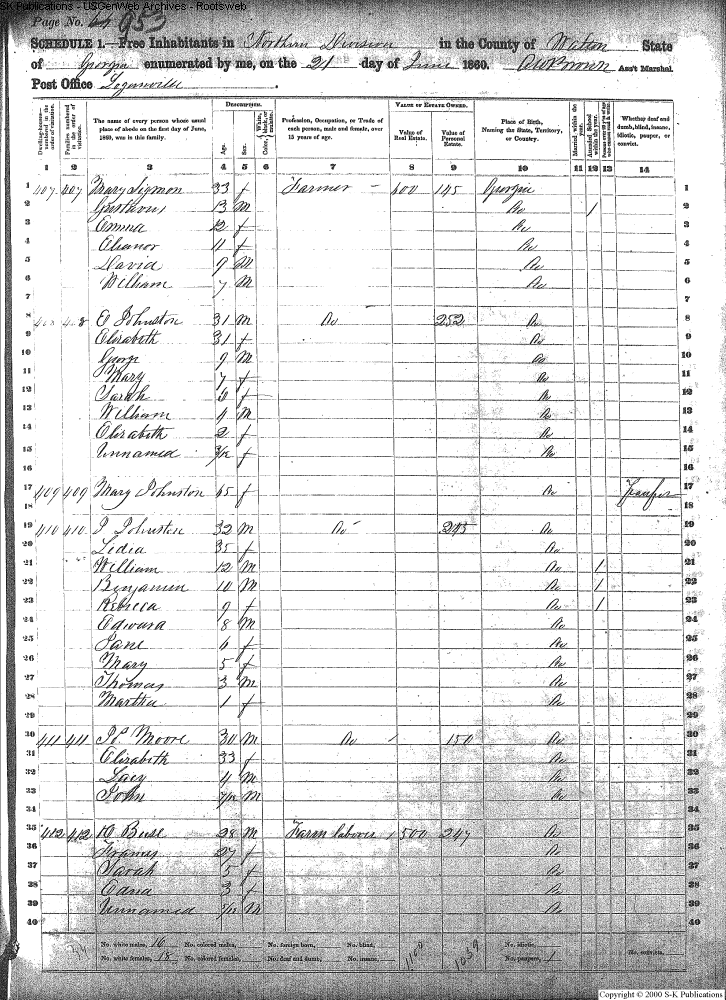 S-K Publications - USGenWeb Archives - Rootsweb
Page No. 64 953
SCHEDULE 1.—Free Inhabitants in Northern Division in the County of Walton State
of Georgia enumerated by me, on the 21 day of June 1860. Ass't Marshal.
Post Office Loganville
DESCRIPTION. VALUE OF ESTATE OWNED.
Dwelling-houses—numbered in the order of visitation. Families numbered in the order of visitation. The name of every person whose usual place of abode on the first day of June, 1860, was in this family. Age. Sex. Color, Profession, Occupation, or Trade of each person, male and female, over 15 years of age. Value of Real Estate. Value of Personal Estate. Place of Birth, Naming the State, Territory, or Country. Married within the year. Attended School within the year. Whether deaf and dumb, blind, insane, idiotic, pauper, or convict.
1 2 3 4 5 6 7 8 9 10 11 12 13 14
1 407 407 Mary Sigmon 33 f Farmer 600 145 Georgia 1
2 Gusthavus 13 M Do 1 2
3 Emma 12 f Do 3
4 Eleanor 11 f Do 4
5 David 9 M Do 5
6 William 7 M Do 6
7 7
8 408 408 E Johnston 31 M Do 252 Do 8
9 Elizabeth 31 f Do 9
10 George 9 M Do 10
11 Mary 7 f Do 11
12 Sarah 6 f Do 12
13 William 4 M Do 13
14 Elizabeth 2 f Do 14
15 Unnamed f Do 15
16 16
17 409 409 Mary Johnston 65 f Do Pauper 17
18 18
19 410 410 J Johnston 32 M Do 293 Do 19
20 Lidia 35 f Do 20
21 William 12 M Do 1 21
22 Benjamin 10 M Do 1 22
23 Rebecca 9 f Do 1 23
24 Edward 8 M Do 24
25 Jane 6 f Do 25
26 Mary 5 f Do 26
27 Thomas 3 M Do 27
28 Martha 1 f Do 28
29 29
30 411 411 Moore 30 M Do 150 Do 30
31 Elizabeth 33 f Do 31
32 Lacy 4 M Do 32
33 John M Do 33
34 34
35 412 412 28 M Farm laborer 500 247 Do 35
36 Frances 27 f Do 36
37 Sarah 5 f Do 37
38 Edna 3 f Do 38
39 Unnamed M Do 39
40 40
No. white males, 16 No. colored males, No. foreign born, No. blind, 1100 1039 No. idiotic,
No. white females, 18 No. colored females, No. deaf and dumb, No. insane, No. paupers, 1 No. convicts,
Copyright © 2000 S-K Publications